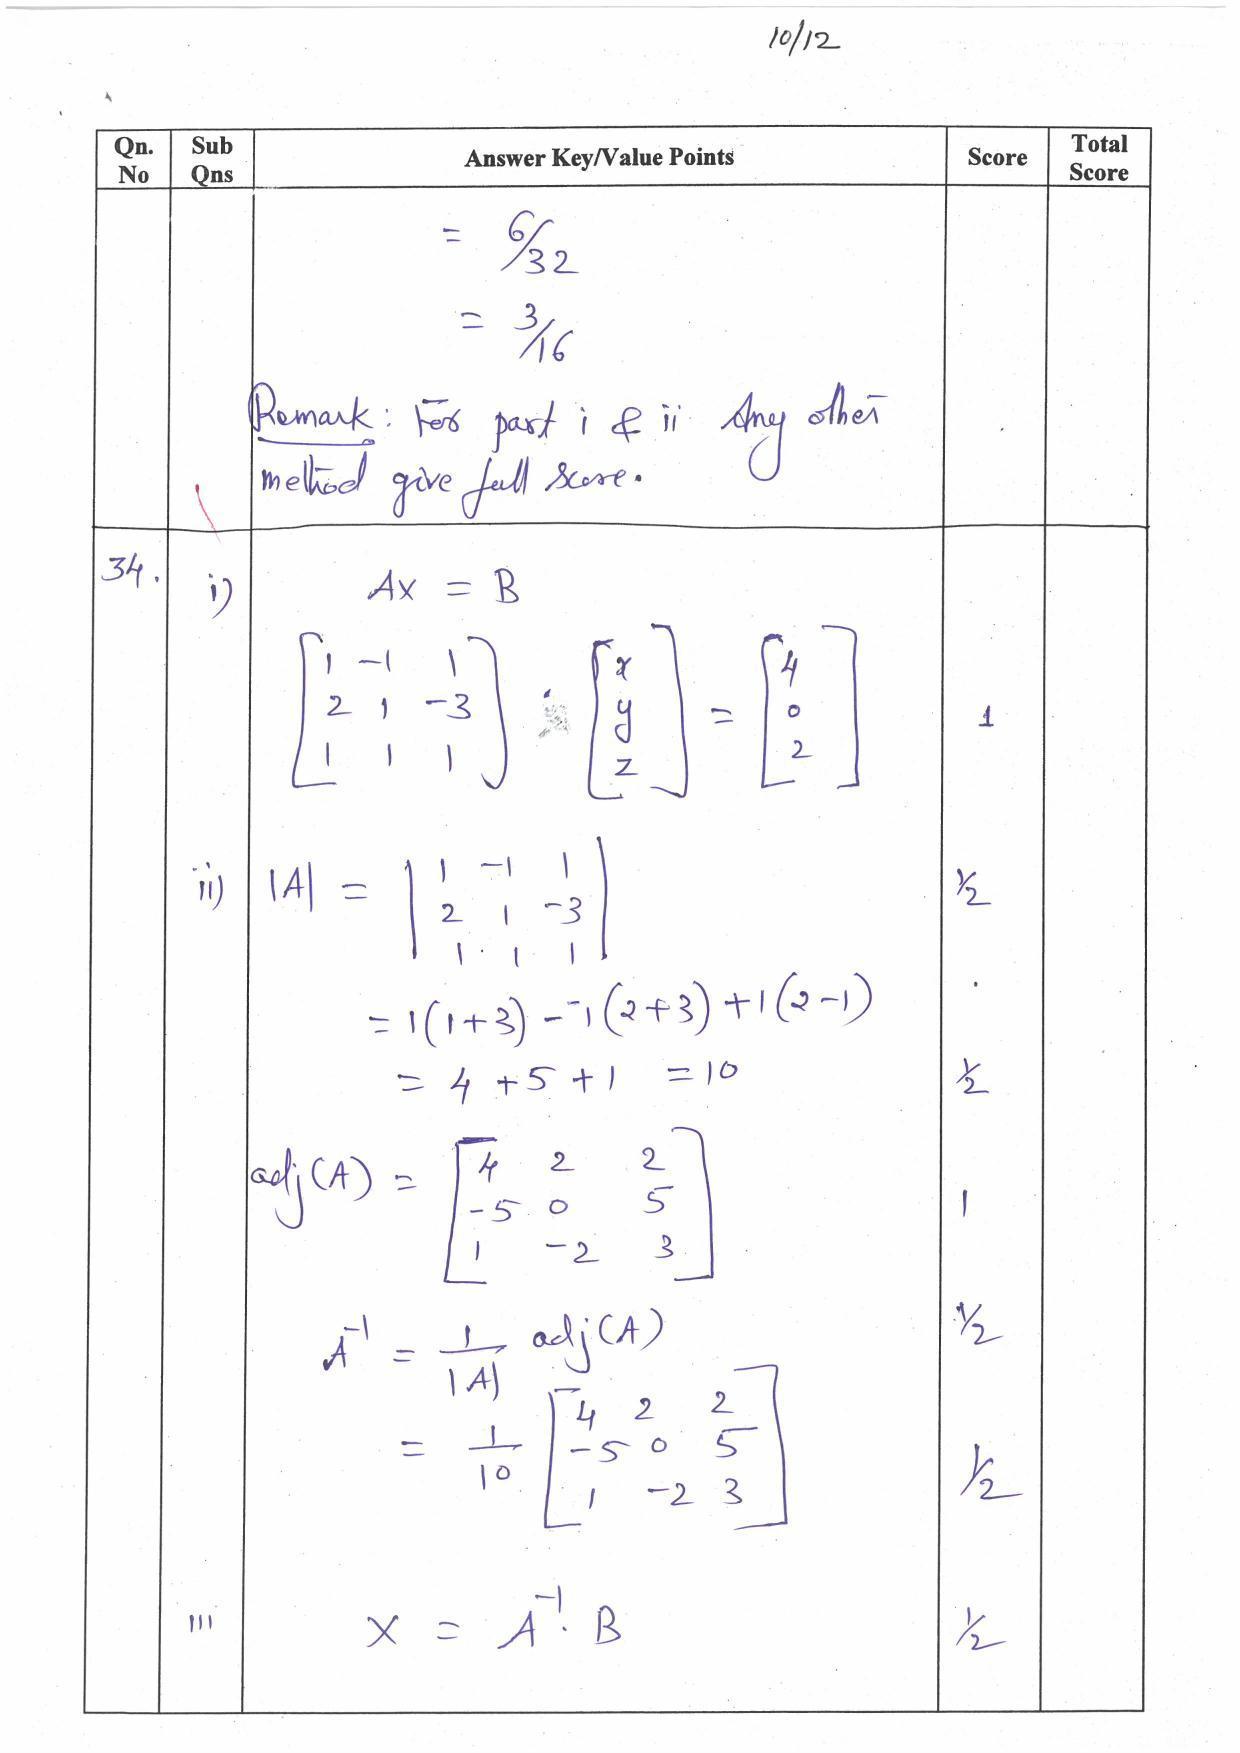 10/12
Qn. No | Sub Qns | Answer Key/Value Points | Score | Total Score
= 6/32
= 3/16
Remark: For part i & ii Any other
method give full score.
34. i) Ax = B
[1 -1 1; 2 1 -3; 1 1 1] . [x; y; z] = [4; 0; 2] 1
ii) |A| = |1 -1 1; 2 1 -3; 1 1 1| 1/2
= 1(1+3) - -1(2+3) + 1(2-1)
= 4 + 5 + 1 = 10 1/2
adj(A) = [4 2 2; -5 0 5; 1 -2 3] 1
A⁻¹ = 1/|A| adj(A) 1/2
= 1/10 [4 2 2; -5 0 5; 1 -2 3] 1/2
iii X = A⁻¹. B 1/2